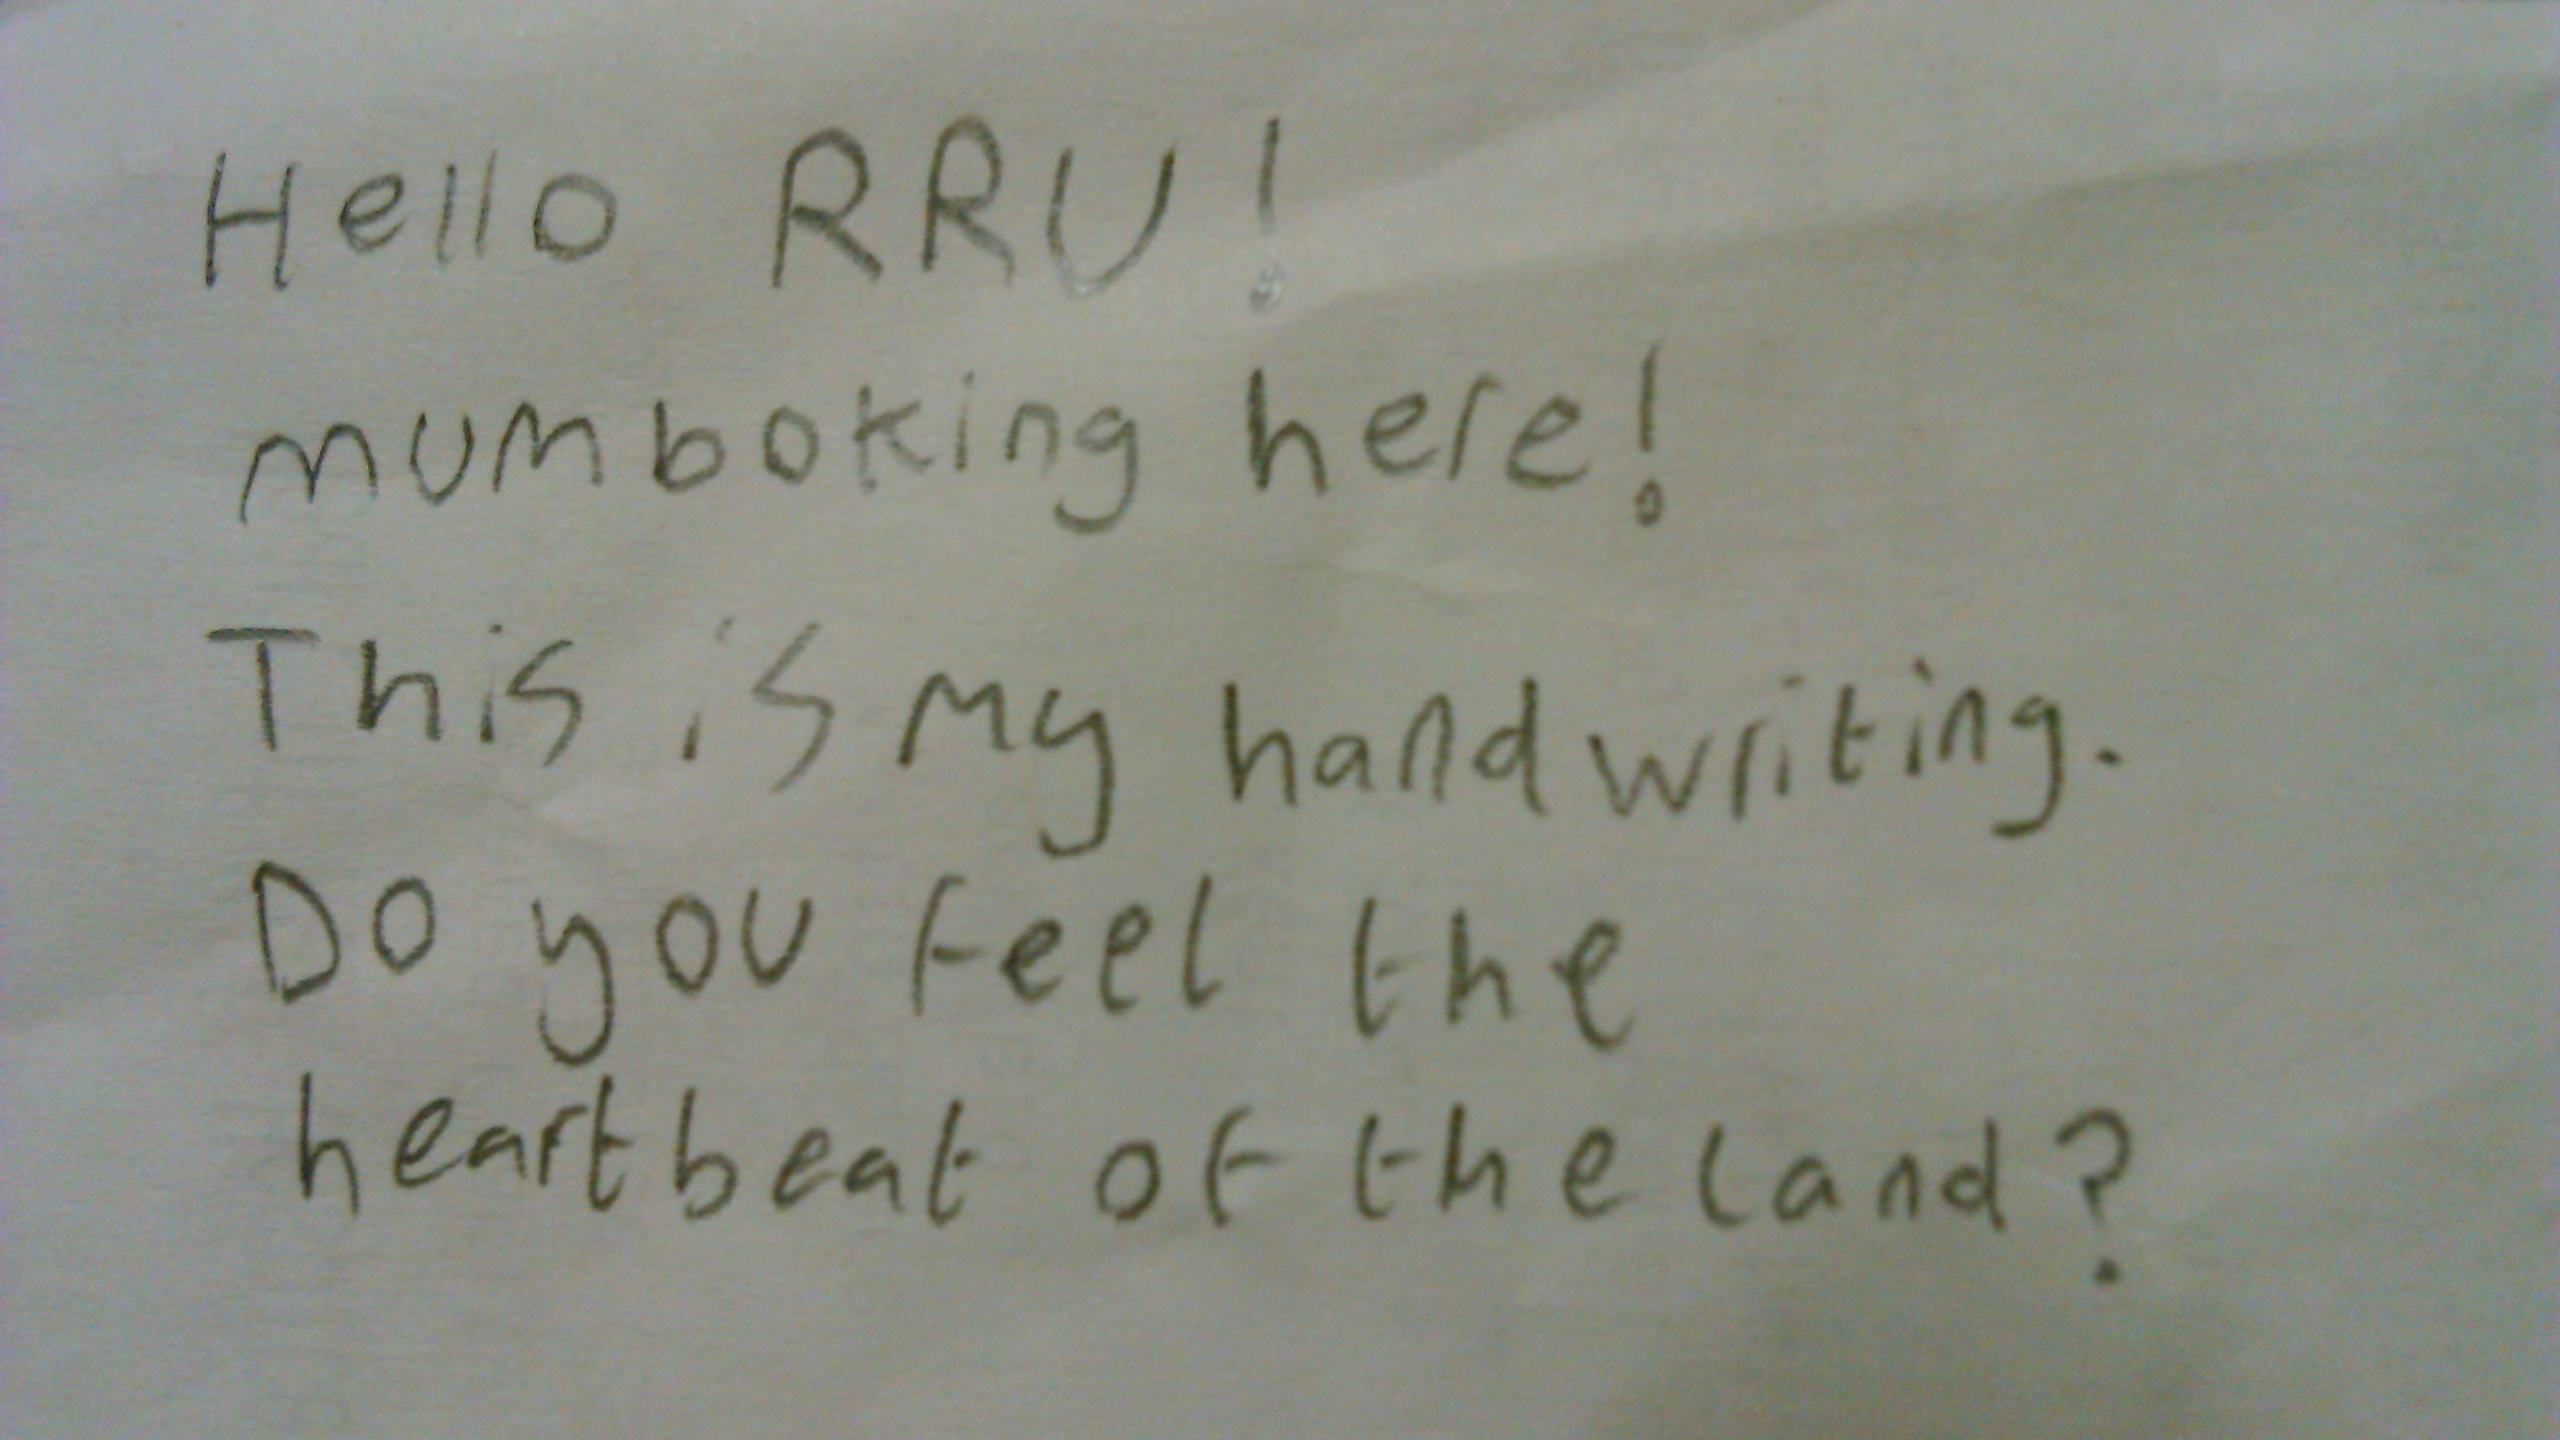 Hello RRU!
mumboking here!
This is my handwriting.
Do you feel the
heartbeat of the land?